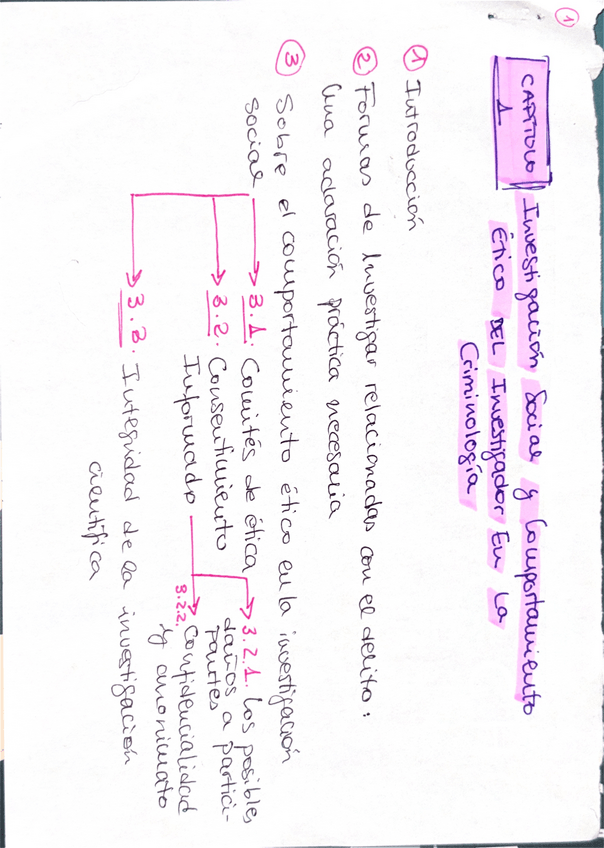 1
CAPÍTULO
1
Investigación Social y Comportamiento
Ético DEL Investigador En La
Criminología
1 Introducción
2 Formas de Investigar relacionadas con el delito:
Una aclaración práctica necesaria
3 Sobre el comportamiento ético en la investigación
social
3.1. Comités de ética
3.2. Consentimiento
Informado
3.2.1. Los posibles
daños a partici-
pantes
3.2.2. Confidencialidad
y anonimato
3.3. Integridad de la investigación
científica